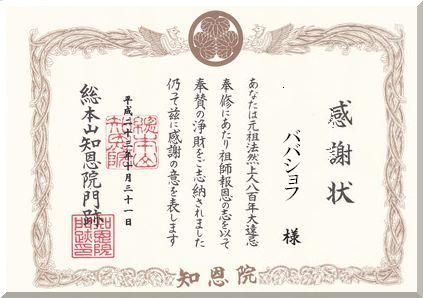 感謝状
ババショフ 様
あなたは元祖法然上人八百年大遠忌
奉修にあたり祖師報恩の志を以て
奉賛の浄財をご志納されました
仍て茲に感謝の意を表します
平成二十三年十月三十一日
総本山知恩院門跡
知恩院